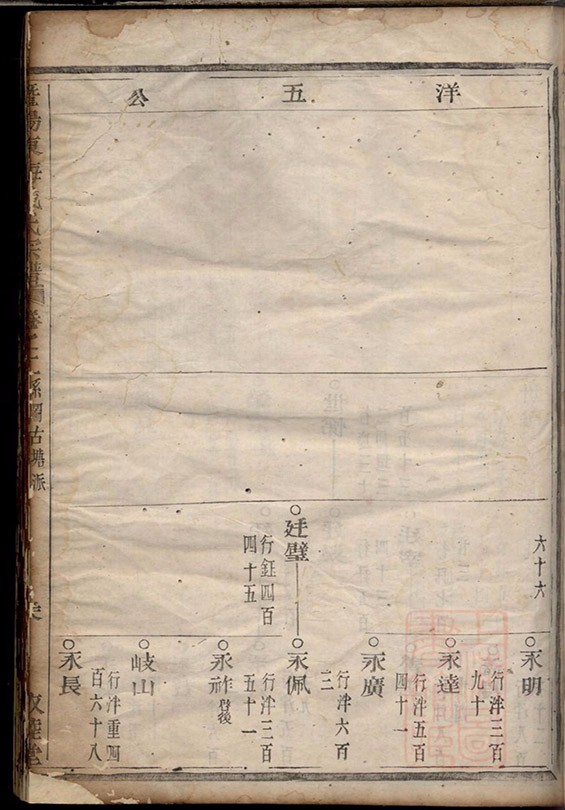 洋五公
六十六
永明
永達
行泮三百
九十
行泮五百
四十一
永廣
行泮六百
三
廷璧
行鈺四百
四十五
永佩
行泮三百
五十一
永祚
岐山
行泮重四
百六十八
永長
系圖古塘派